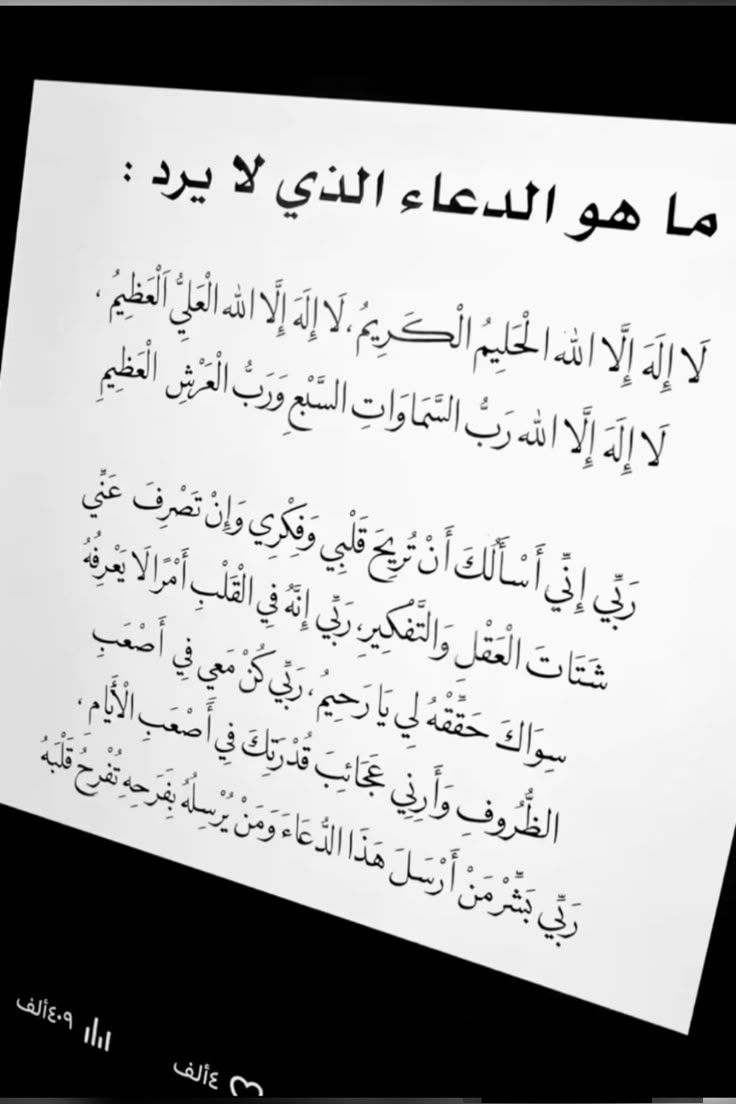 ما هو الدعاء الذي لا يرد :
لَا إِلَهَ إِلَّا الله الْحَلِيمُ الْكَرِيمُ، لَا إِلَهَ إِلَّا الله الْعَلِيُّ الْعَظِيمُ ،
لَا إِلَهَ إِلَّا الله رَبُّ السَّمَاوَاتِ السَّبْعِ وَرَبُّ الْعَرْشِ الْعَظِيمِ
رَبِّي إِنِّي أَسْأَلُكَ أَنْ تُرِيحَ قَلْبِي وَفِكْرِي وَإِنْ تَصْرِفَ عَنِّي
شَتَاتَ الْعَقْلِ وَالتَّفْكِيرِ، رَبِّي إِنَّهُ فِي الْقَلْبِ أَمْرًا لَا يَعْرِفُهُ
سِوَاكَ حَقِّقْهُ لِي يَا رَحِيمُ ، رَبِّي كُنْ مَعِي فِي أَصْعَبِ
الظُّرُوفِ وَأَرِنِي عَجَائِبَ قُدْرَتِكَ فِي أَصْعَبِ الْأَيَّام ،
رَبِّي بَشِّرْ مَنْ أَرْسَلَ هَذَا الدُّعَاءَ وَمَنْ يُرْسِلُهُ بِفَرَحِهِ تُفْرِحُ قَلْبَهُ
٤ألف ٤٠٩ألف